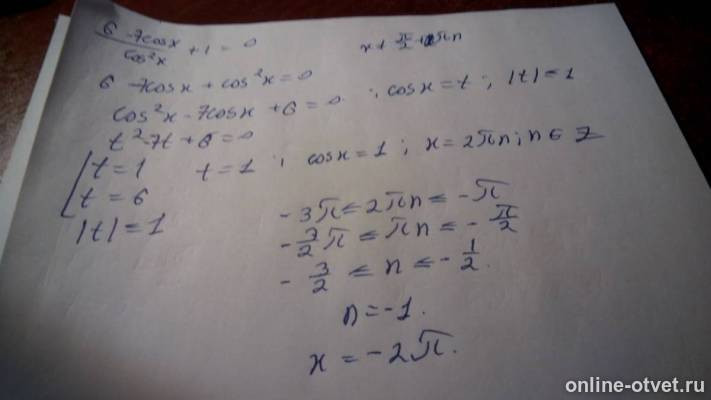 6 -7cosx / cos²x + 1 = 0
x ≠ π/2 + πn
6 -7cosx + cos²x = 0
cos²x - 7cosx + 6 = 0 ; cosx = t ; |t| = 1
t² - 7t + 6 = 0
[ t = 1 t = 1 ; cosx = 1 ; x = 2πn ; n ∈ Z
t = 6
|t| = 1
-3π ≤ 2πn ≤ -π
-3/2 π ≤ πn ≤ -π/2
-3/2 ≤ n ≤ -1/2.
n = -1.
x = -2π.
online-otvet.ru